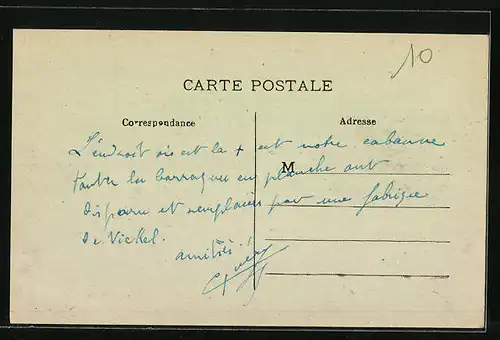 10
CARTE POSTALE
Correspondance
Adresse
M
L'endroit où est la + est notre cabanne
toutes les barraques en planche ont
disparu et remplacés par une fabrique
de Nickel.
amitiés!